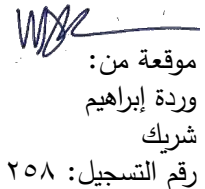 موقعة من:
وردة إبراهيم
شريك
رقم التسجيل: ٢٥٨